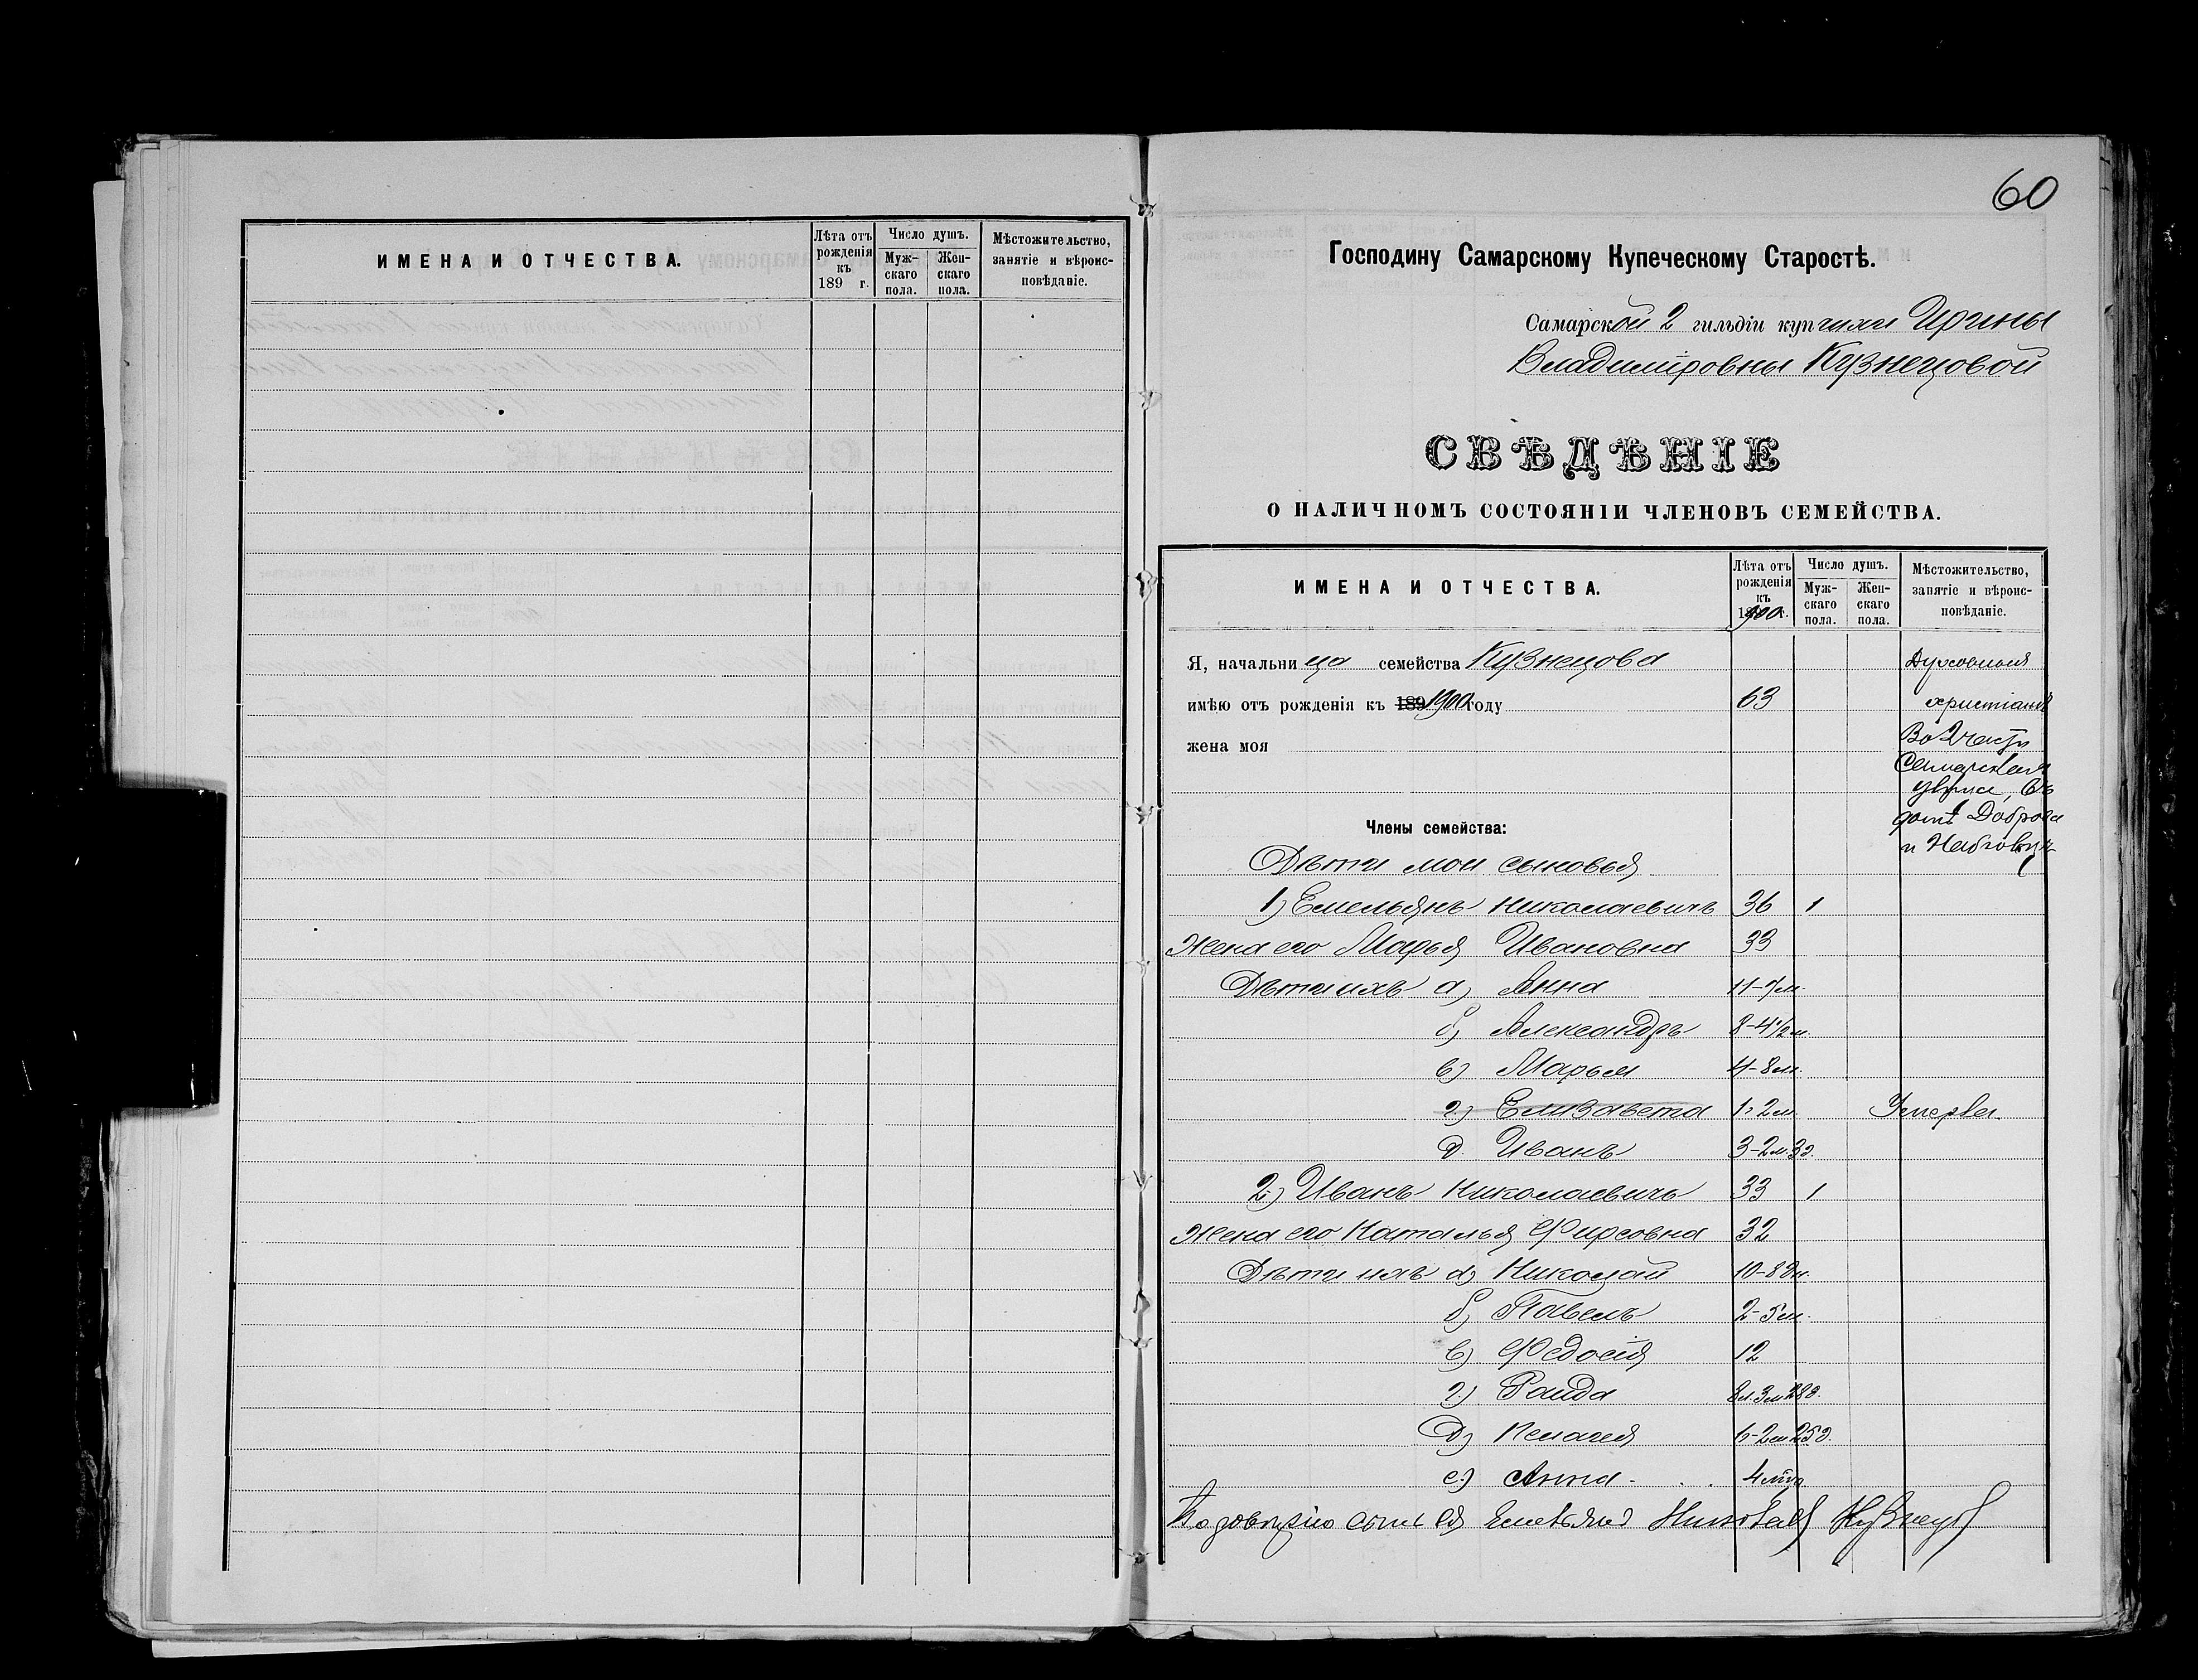 ИМЕНА И ОТЧЕСТВА.
Лѣта отъ рожденія къ 189 г.
Число душъ.
Мужскаго пола.
Женскаго пола.
Мѣстожительство, занятіе и вѣроисповѣданіе.
60
Господину Самарскому Купеческому Старостѣ.
Самарской 2 гильдіи купчихи Ирины
Владиміровны Кузнецовой
СВѢДѢНІЕ
О НАЛИЧНОМЪ СОСТОЯНІИ ЧЛЕНОВЪ СЕМЕЙСТВА.
ИМЕНА И ОТЧЕСТВА.
Лѣта отъ рожденія къ 1900 г.
Число душъ.
Мужскаго пола.
Женскаго пола.
Мѣстожительство, занятіе и вѣроисповѣданіе.
Я, начальница семейства Кузнецова
Духовныя
имѣю отъ рожденія къ 189 1900 году 63
христіанѣ
жена моя
Во 2 части
Самарская
улица, въ
домѣ Доброва
и
Члены семейства:
Дѣти мои сыновья
1) Емельянъ Николаевичъ 36 1
Жена его Марья Ивановна 33
Дѣти ихъ а) Анна 11-7м.
б) Александръ 8-4½м.
в) Марья 4-8м.
г) Елизавета 1г 2м. Умерла
д. Иванъ 3-2м.3д.
2) Иванъ Николаевичъ 33 1
Жена его Наталья Фирсовна 32
Дѣти ихъ а) Николай 10-8дн.
б) Павелъ 2-5м.
в) Федосія 12
г) Раида 8л.3м.28д.
д) Пелагея 6-2м.25д.
е) Анна 4 мца
По довѣрію сынъ ея Емельянъ Николаев Кузнецов